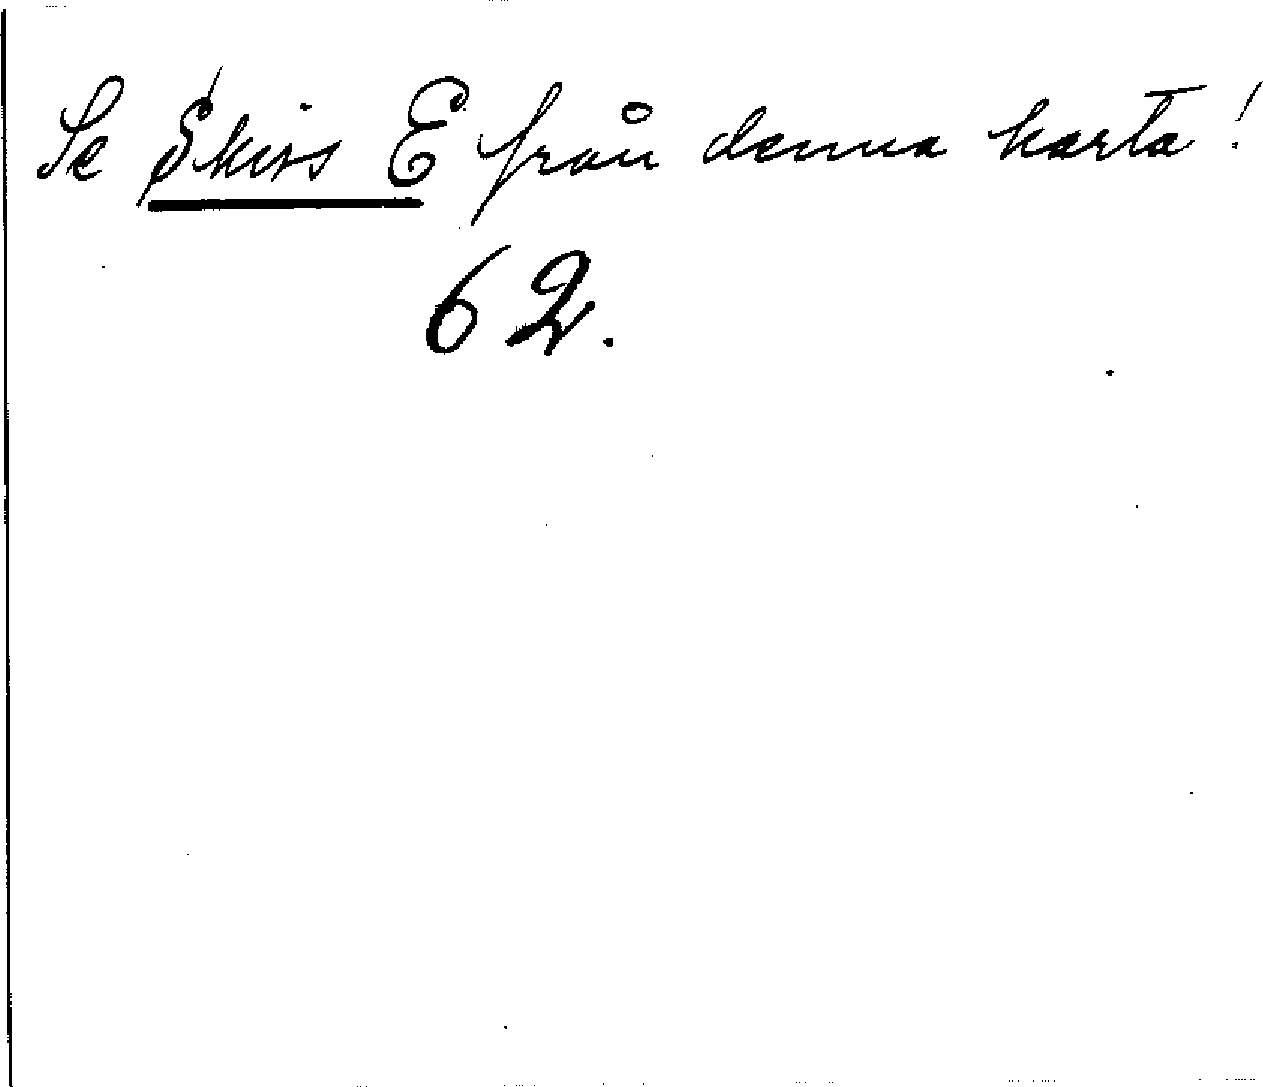 Se Skiss E från denna karta!
62.